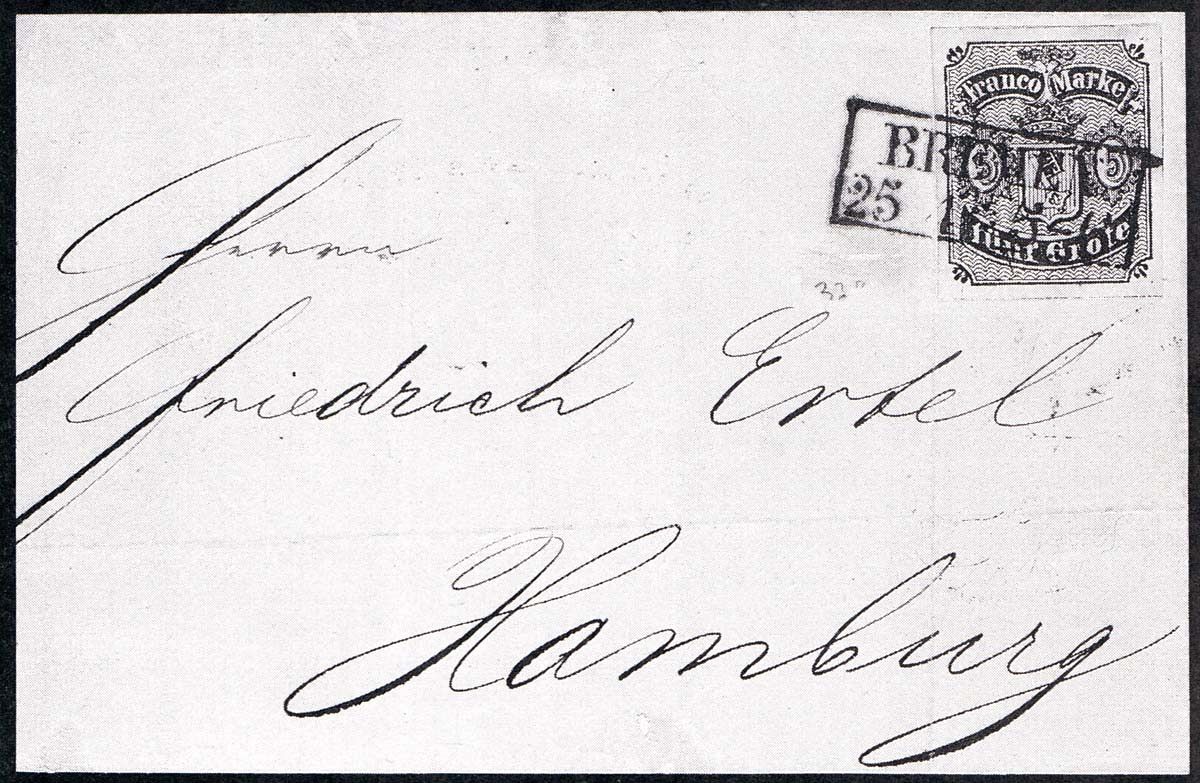 Franco Marke
5 5
fünf Grote
BRE
25
Herrn
Friedrich Ertel
Hamburg